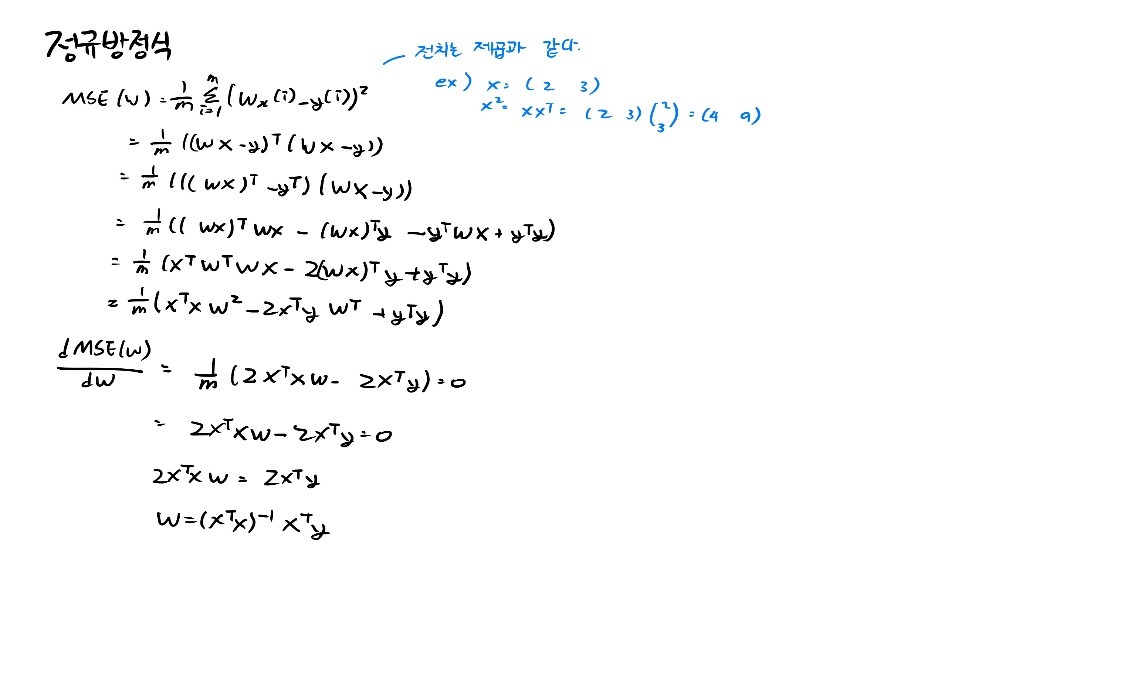 정규방정식
전치는 제곱과 같다.
ex) x = (2 3)
x² = xxᵀ = (2 3)(2 3) = (4 9)
MSE(w) = 1/m Σ_{i=1}^{m} (Wx(i) - y(i))²
= 1/m ((WX-y)ᵀ(WX-y))
= 1/m (((WX)ᵀ-yᵀ)(WX-y))
= 1/m ((WX)ᵀWX - (WX)ᵀy - yᵀWX + yᵀy)
= 1/m (XᵀWᵀWX - 2(WX)ᵀy + yᵀy)
= 1/m (XᵀX W² - 2Xᵀy Wᵀ + yᵀy)
dMSE(w)/dw = 1/m (2XᵀXW - 2Xᵀy) = 0
= 2XᵀXW - 2Xᵀy = 0
2XᵀXW = 2Xᵀy
W = (XᵀX)⁻¹ Xᵀy